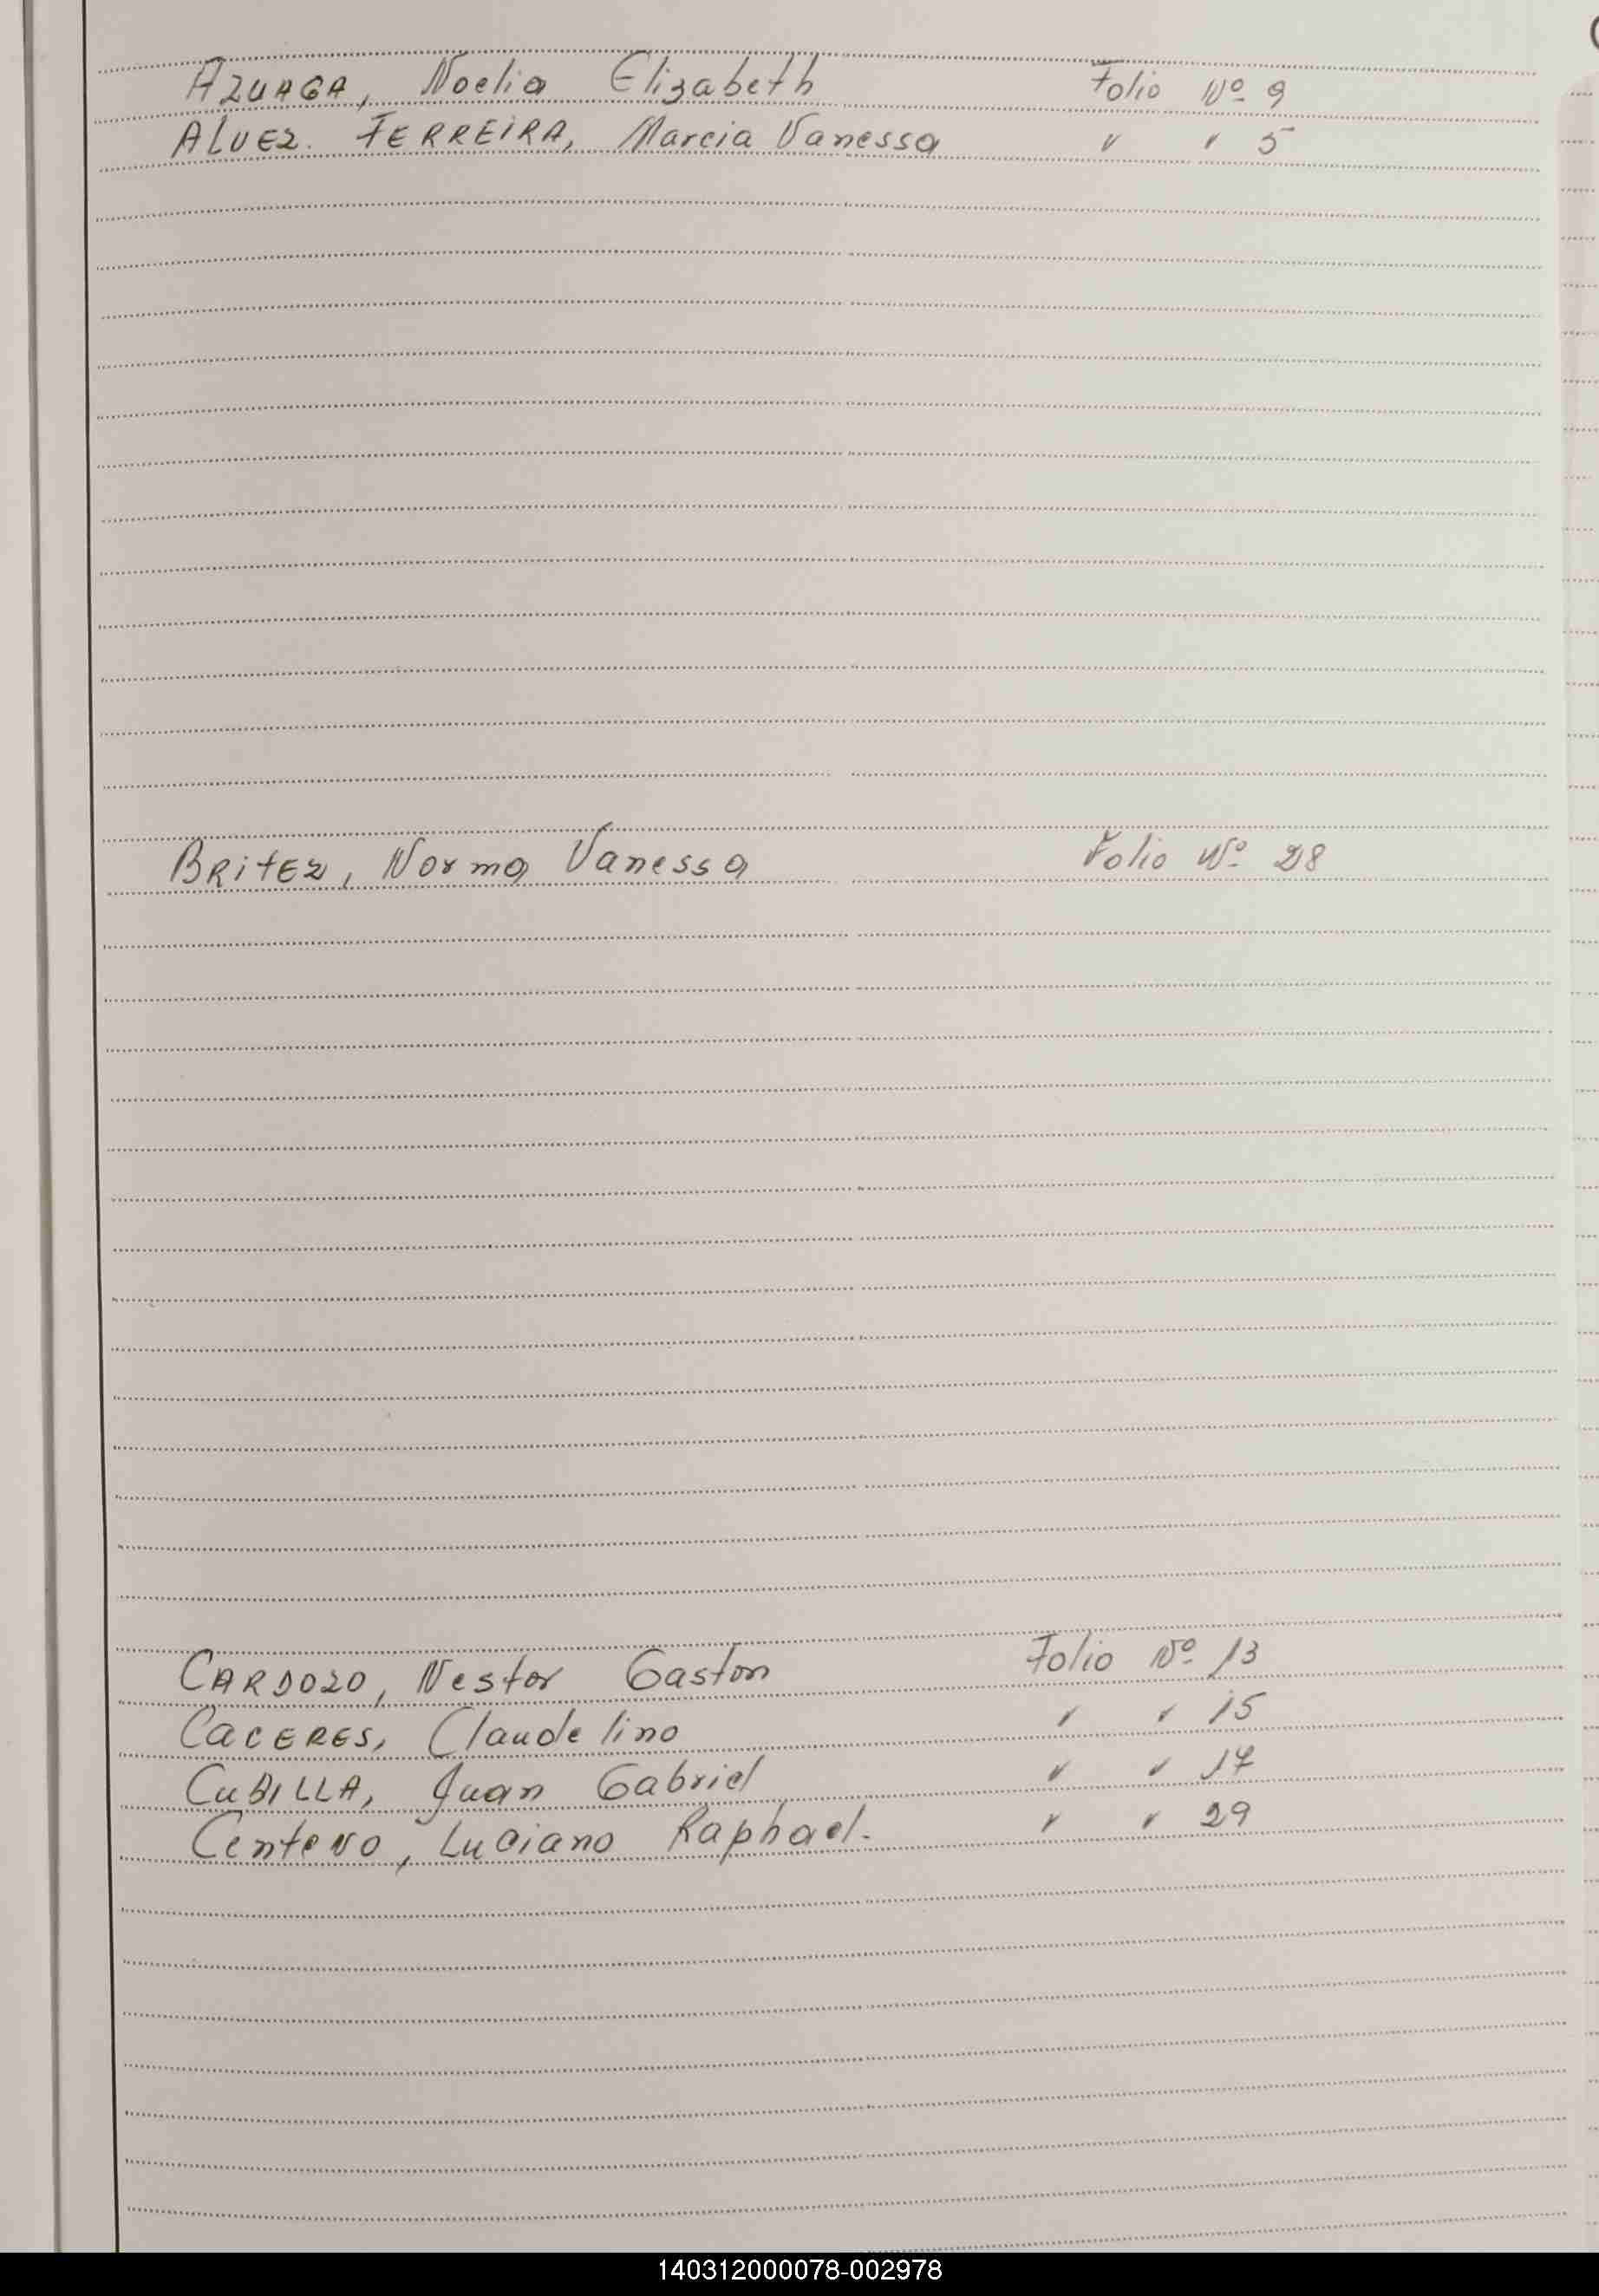 AZUAGA, Noelia Elizabeth Folio Nº 9
ALVEZ. FERREIRA, Marcia Vanessa " " 5
BRITEZ, Norma Vanessa Folio Nº 28
CARDOZO, Nestor Gaston Folio Nº 13
CACERES, Claudelino " " 15
CUBILLA, Juan Gabriel " " 17
Centeno, Luciano Raphael. " " 29
140312000078-002978